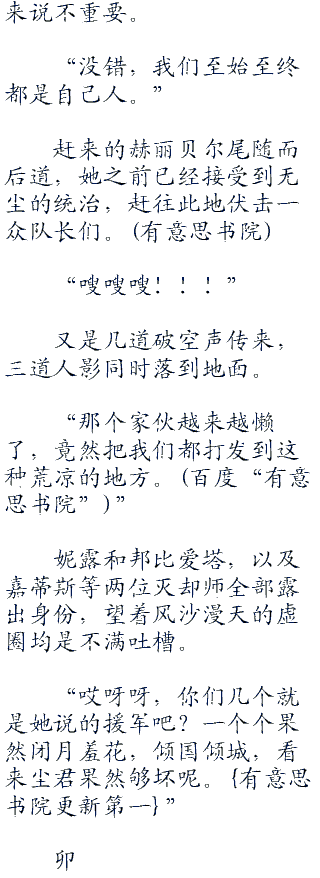 来说不重要。
“没错，我们至始至终
都是自己人。”
赶来的赫丽贝尔尾随而
后道，她之前已经接受到无
尘的统治，赶往此地伏击一
众队长们。(有意思书院)
“嗖嗖嗖！！！”
又是几道破空声传来，
三道人影同时落到地面。
“那个家伙越来越懒
了，竟然把我们都打发到这
种荒凉的地方。(百度“有意
思书院”)”
妮露和邦比爱塔，以及
嘉蒂斯等两位灭却师全部露
出身份，望着风沙漫天的虚
圈均是不满吐槽。
“哎呀呀，你们几个就
是她说的援军吧？一个个果
然闭月羞花，倾国倾城，看
来尘君果然够坏呢。{有意思
书院更新第一}”
卯